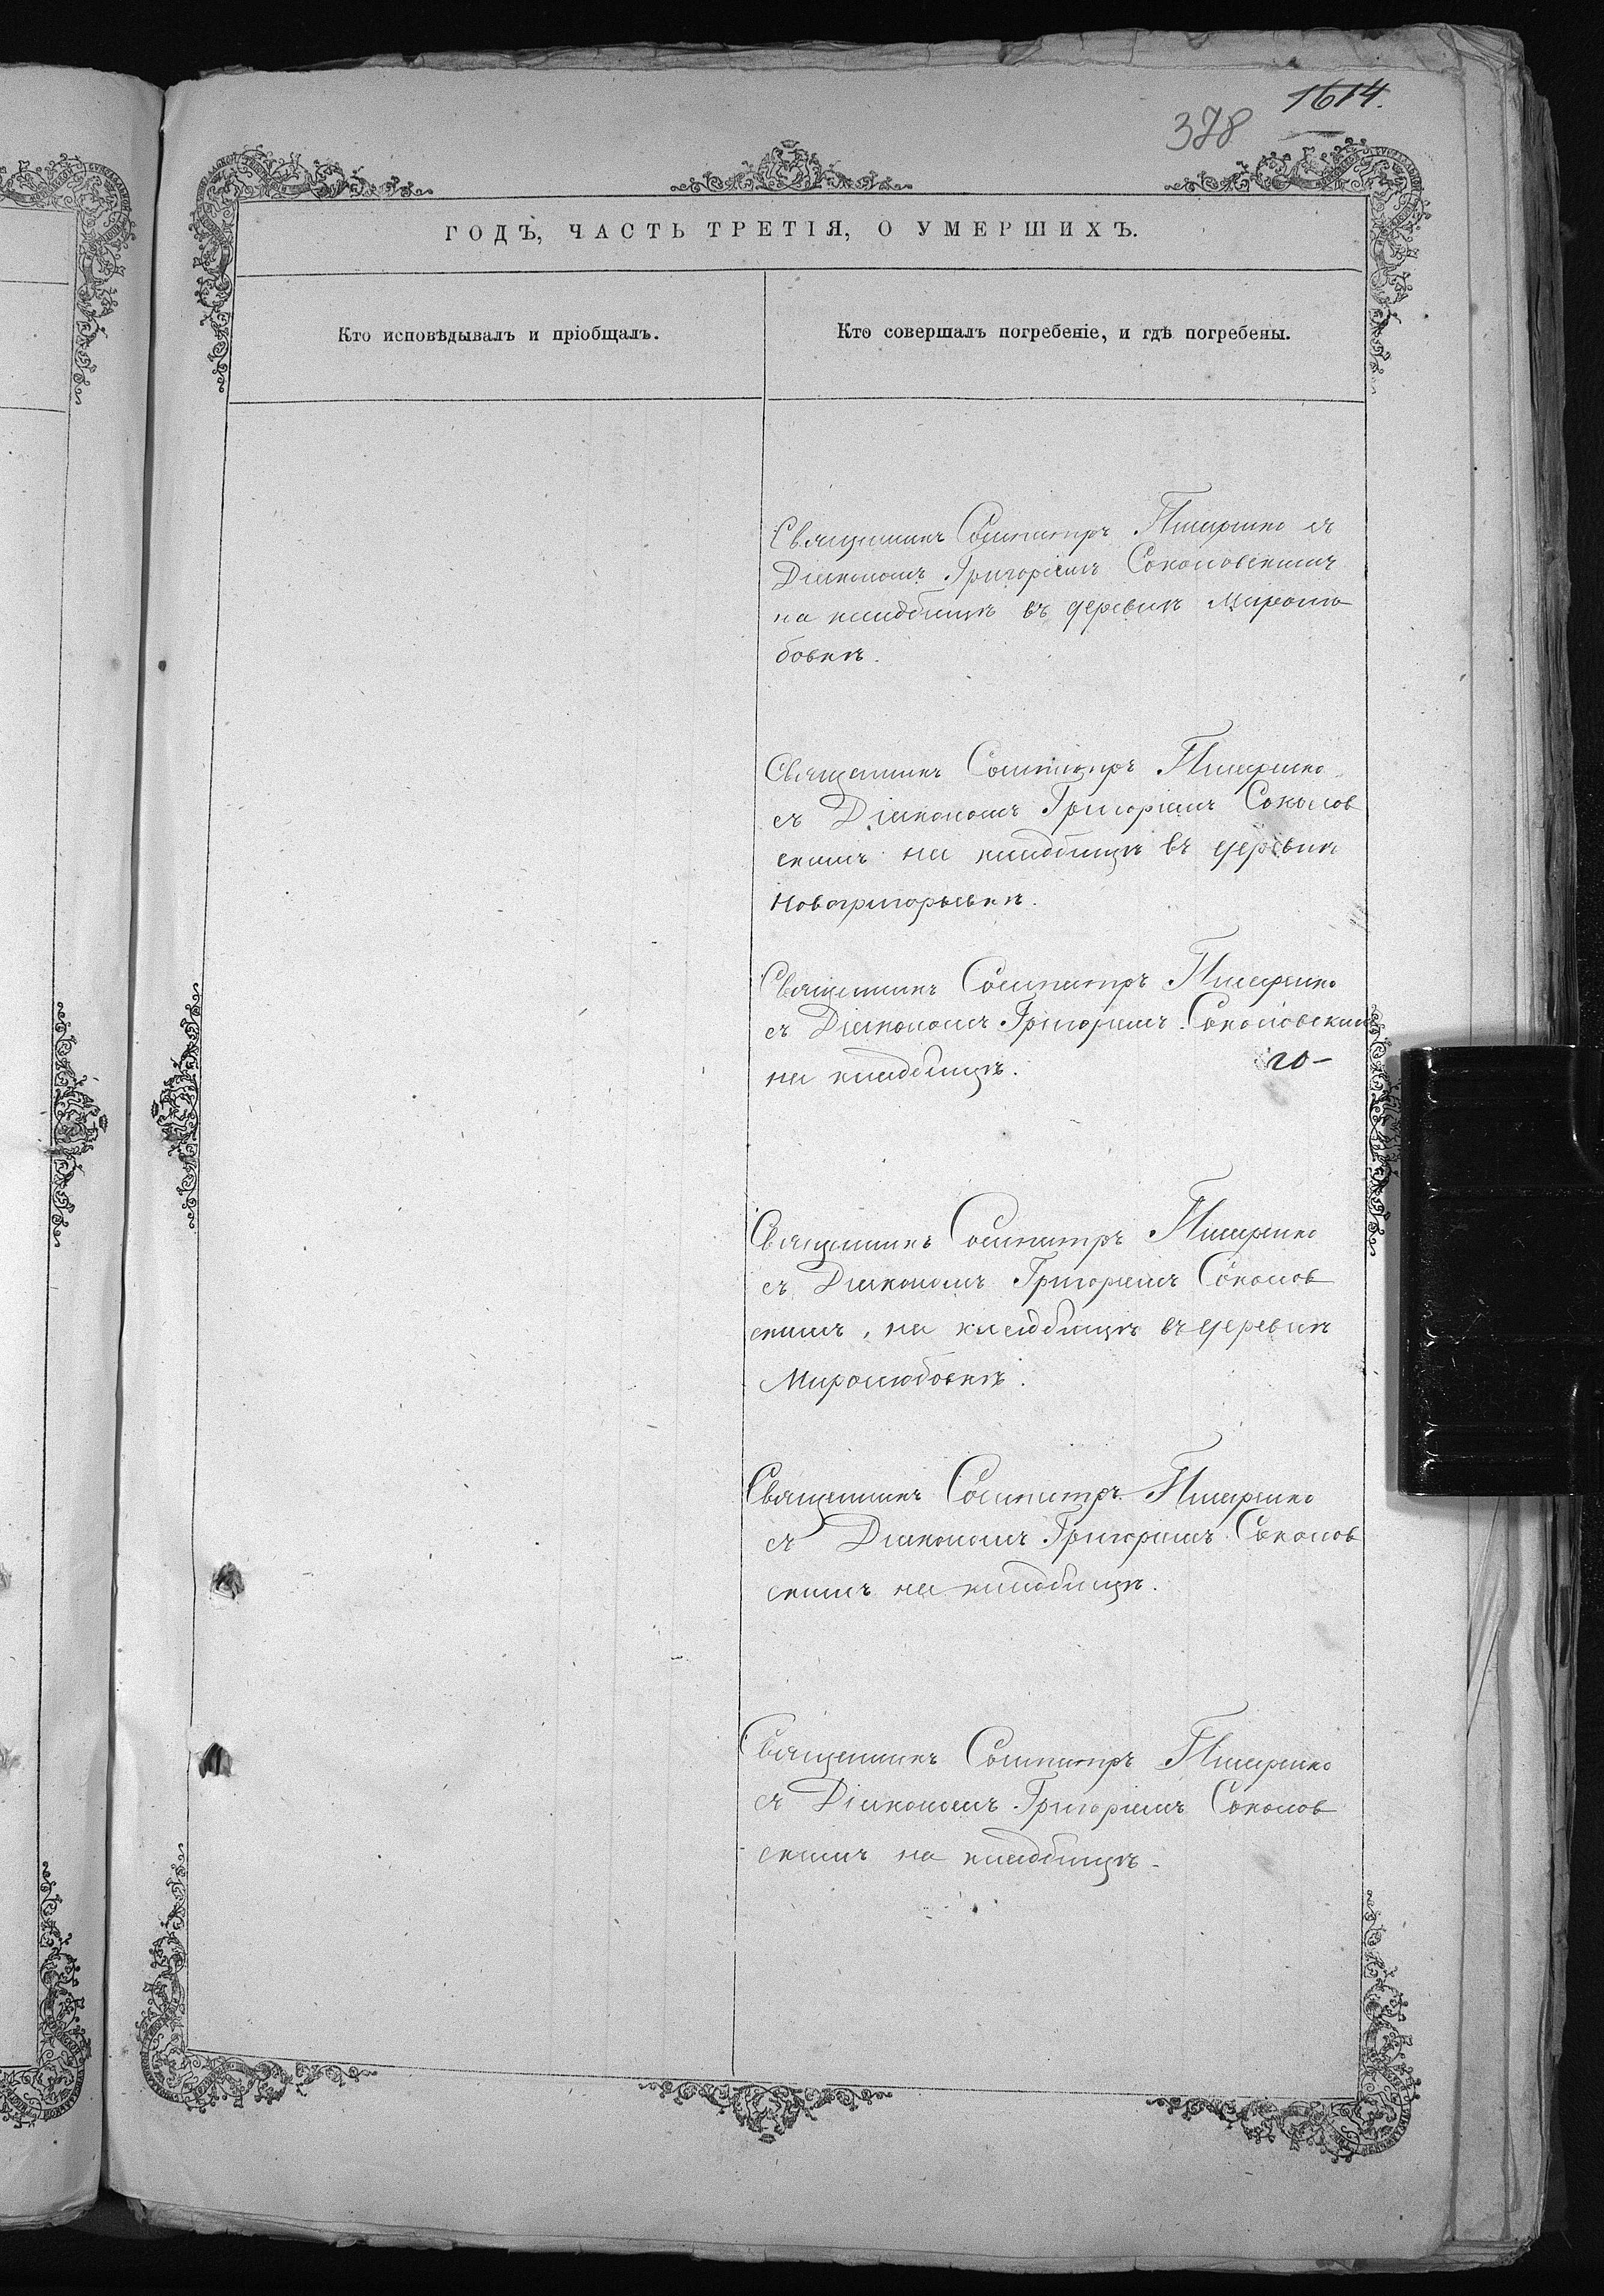 1614.
378
ГОДЪ, ЧАСТЬ ТРЕТІЯ, О УМЕРШИХЪ.
Кто исповѣдывалъ и пріобщалъ.
Кто совершалъ погребеніе, и гдѣ погребены.
Священникъ Сосипатръ Писаренко съ
Діакономъ Григоріемъ Соколовскимъ
на кладбищѣ въ деревнѣ Миролю
бовкѣ.
Священникъ Сосипатръ Писаренко
съ Діакономъ Григоріемъ Соколов
скимъ на кладбищѣ въ деревнѣ
Новогригорьевкѣ.
Священникъ Сосипатръ Писаренко
съ Діакономъ Григоріемъ Соколовским
на кладбищѣ.
Священникъ Сосипатръ Писаренко
съ Діакономъ Григоріемъ Соколов
скимъ, на кладбищѣ въ деревнѣ
Миролюбовкѣ.
Священникъ Сосипатръ Писаренко
съ Діакономъ Григоріемъ Соколов
скимъ на кладбищѣ.
Священникъ Сосипатръ Писаренко
съ Діакономъ Григоріемъ Соколов
скимъ на кладбищѣ.